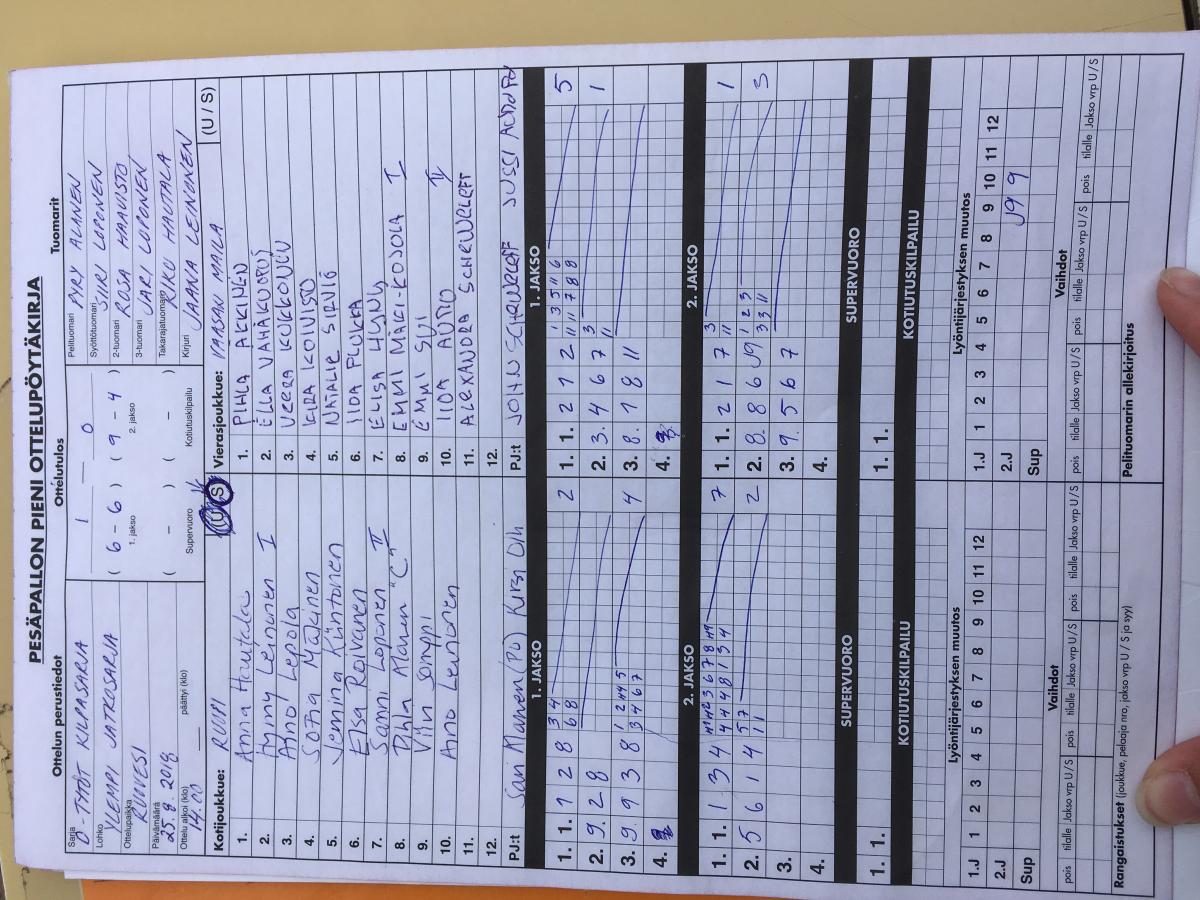 PESÄPALLON PIENI OTTELUPÖYTÄKIRJA
Ottelun perustiedot Ottelutulos Tuomarit
Sarja D-TYTÖT KILPASARJA
Lohko YLEMPI JATKOSARJA
Ottelupaikka RUOVESI
Päivämäärä 25.8.2018
Ottelu alkoi (klo) 14.00 päättyi (klo)
1 - 0
( 6 - 6 ) ( 9 - 4 )
1. jakso 2. jakso
( - ) ( - )
Supervuoro Kotiutuskilpailu
Pelituomari PYRY ALANEN
Syöttötuomari SUVI LOPONEN
2-tuomari ROSA HAAVISTO
3-tuomari JARI LOPONEN
Takarajatuomari RIKU HAUTALA
Kirjuri JAANA LEINONEN
Kotijoukkue: RUUPI (U / S)
1. Anna Hautala
2. Hymy Leinonen I
3. Aino Lepola
4. Sofia Mäkinen
5. Jemina Kiintonen
6. Elsa Roivanen
7. Sanni Loponen II
8. Pihla Alanen "C"
9. Viivi Somppi
10. Aino Leinonen
11.
12.
PJ:t Sari Alanen (PJ) Kirsi
Vierasjoukkue: VAASAN MAILA (U / S)
1. PIHLA ÄKKINEN
2. ELLA VÄHÄKUOPUS
3. VEERA KUKKONEN
4. KIRA KOIVISTO
5. NATALIE SIRVIÖ
6. IIDA PLUKKA
7. ELISA
8. EMMI MÄKI-KOJOLA I
9. EMMI SVI
10. IIDA AUTIO II
11. ALEXANDRA SCHRWELEFF
12.
PJ:t JOHN SCHRWELEFF JUSSI
1. JAKSO 1. JAKSO
1. 1. 1 2 8 3 4 6 8 2
2. 9. 2 8
3. 9 3 8 1 2 4 4 5 3 4 6 7 4
4.
1. 1. 2 1 2 1 3 5 11 6 11 11 7 8 8 5
2. 3. 4 6 7 3 11 1
3. 8. 1 8 11
4.
2. JAKSO 2. JAKSO
1. 1. 1 3 4 7
2. 5 6 1 4 5 7 1 1 2
3.
4.
1. 1. 2 1 7 3 11 1
2. 8. 8 6 J9 1 2 3 3 3 11 3
3. 9. 5 6 7
4.
SUPERVUORO SUPERVUORO
1. 1. 1. 1.
KOTIUTUSKILPAILU KOTIUTUSKILPAILU
Lyöntijärjestyksen muutos Lyöntijärjestyksen muutos
1.J 1 2 3 4 5 6 7 8 9 10 11 12
2.J
Sup
1.J 1 2 3 4 5 6 7 8 9 10 11 12
2.J J9 9
Sup
Vaihdot Vaihdot
pois tilalle Jakso vrp U / S pois tilalle Jakso vrp U / S pois tilalle Jakso vrp U / S
pois tilalle Jakso vrp U / S pois tilalle Jakso vrp U / S pois tilalle Jakso vrp U / S
Rangaistukset (joukkue, pelaaja nro, jakso vrp U / S ja syy) Pelituomarin allekirjoitus